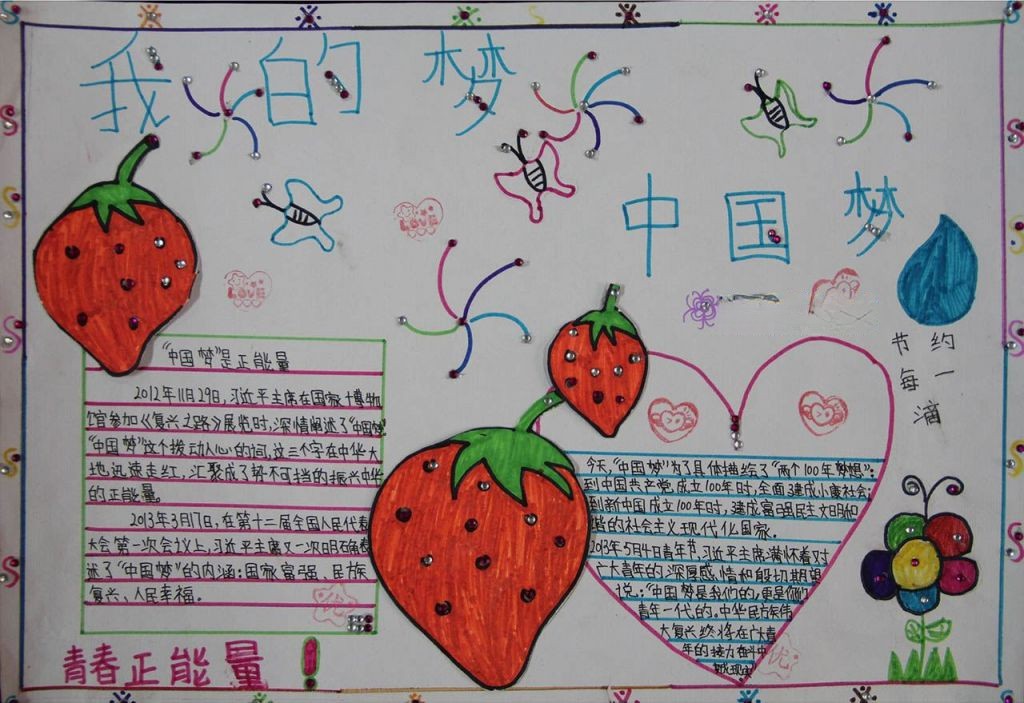 我的梦
中国梦
节约
每一
滴
LOVE
LOVE
"中国梦"是正能量
2012年11月29日,习近平主席在国家博物
馆参加《复兴之路》展览时,深情阐述了"中国梦"
"中国梦"这个拨动人心的词,这三个字在中华大
地迅速走红,汇聚成了势不可挡的振兴中华
的正能量。
2013年3月17日,在第十二届全国人民代表
大会第一次会议上,习近平主席又一次明确阐
述了"中国梦"的内涵:国家富强、民族
复兴、人民幸福。
优
今天,"中国梦"为了具体描绘了"两个100年梦想":
到中国共产党成立100年时,全面建成小康社会;
到新中国成立100年时,建成富强民主文明和
谐的社会主义现代化国家。
2013年5月4日青年节,习近平主席满怀着对
广大青年的深厚感情和殷切期望
说:"中国梦是我们的,更是你们
青年一代的。中华民族伟
大复兴终将在广大青
年的接力奋斗中
变成现实
优
青春正能量!